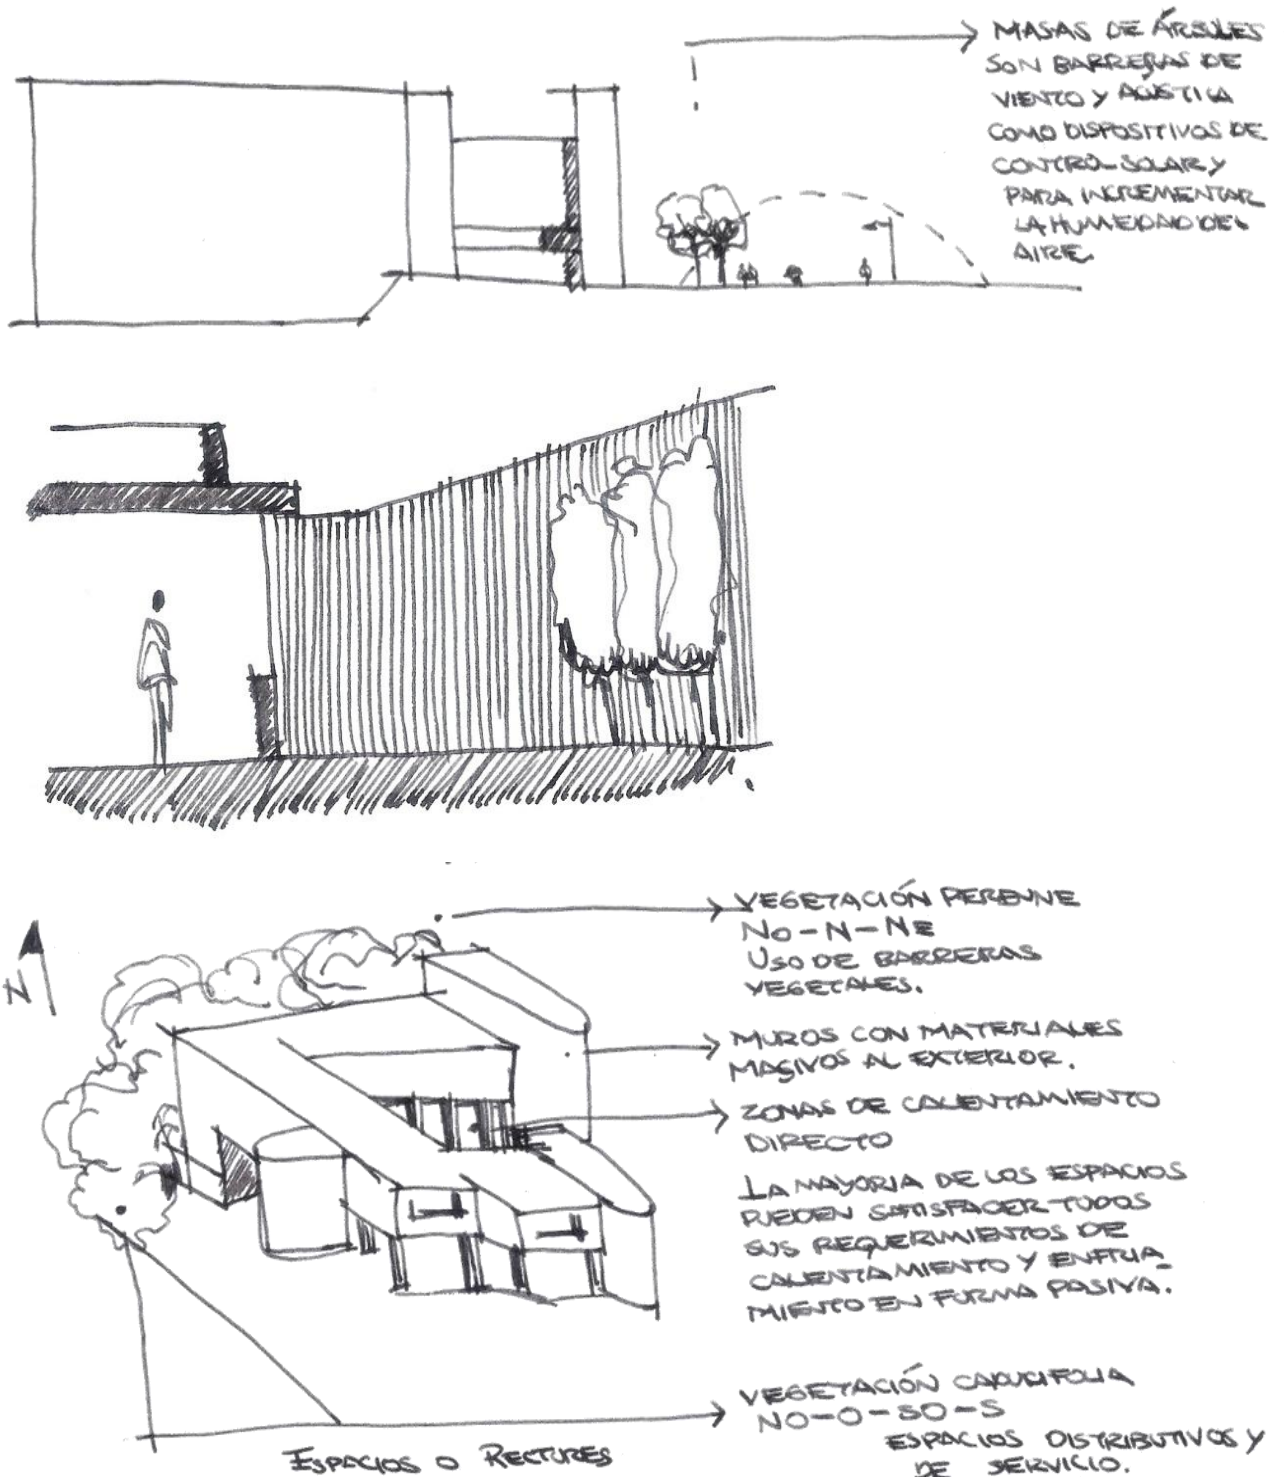 MASAS DE ÁRBOLES
SON BARRERAS DE
VIENTO Y ACÚSTICA
COMO DISPOSITIVOS DE
CONTROL SOLAR Y
PARA INCREMENTAR
LA HUMEDAD DEL
AIRE.
VEGETACIÓN PERENNE
NO-N-NE
USO DE BARRERAS
VEGETALES.
N
MUROS CON MATERIALES
MASIVOS AL EXTERIOR.
ZONAS DE CALENTAMIENTO
DIRECTO
LA MAYORIA DE LOS ESPACIOS
PUEDEN SATISFACER TODOS
SUS REQUERIMIENTOS DE
CALENTAMIENTO Y ENFRIA-
MIENTO EN FORMA PASIVA.
VEGETACIÓN CADUCIFOLIA
NO-O-SO-S
ESPACIOS DISTRIBUTIVOS Y
DE SERVICIO.
ESPACIOS O